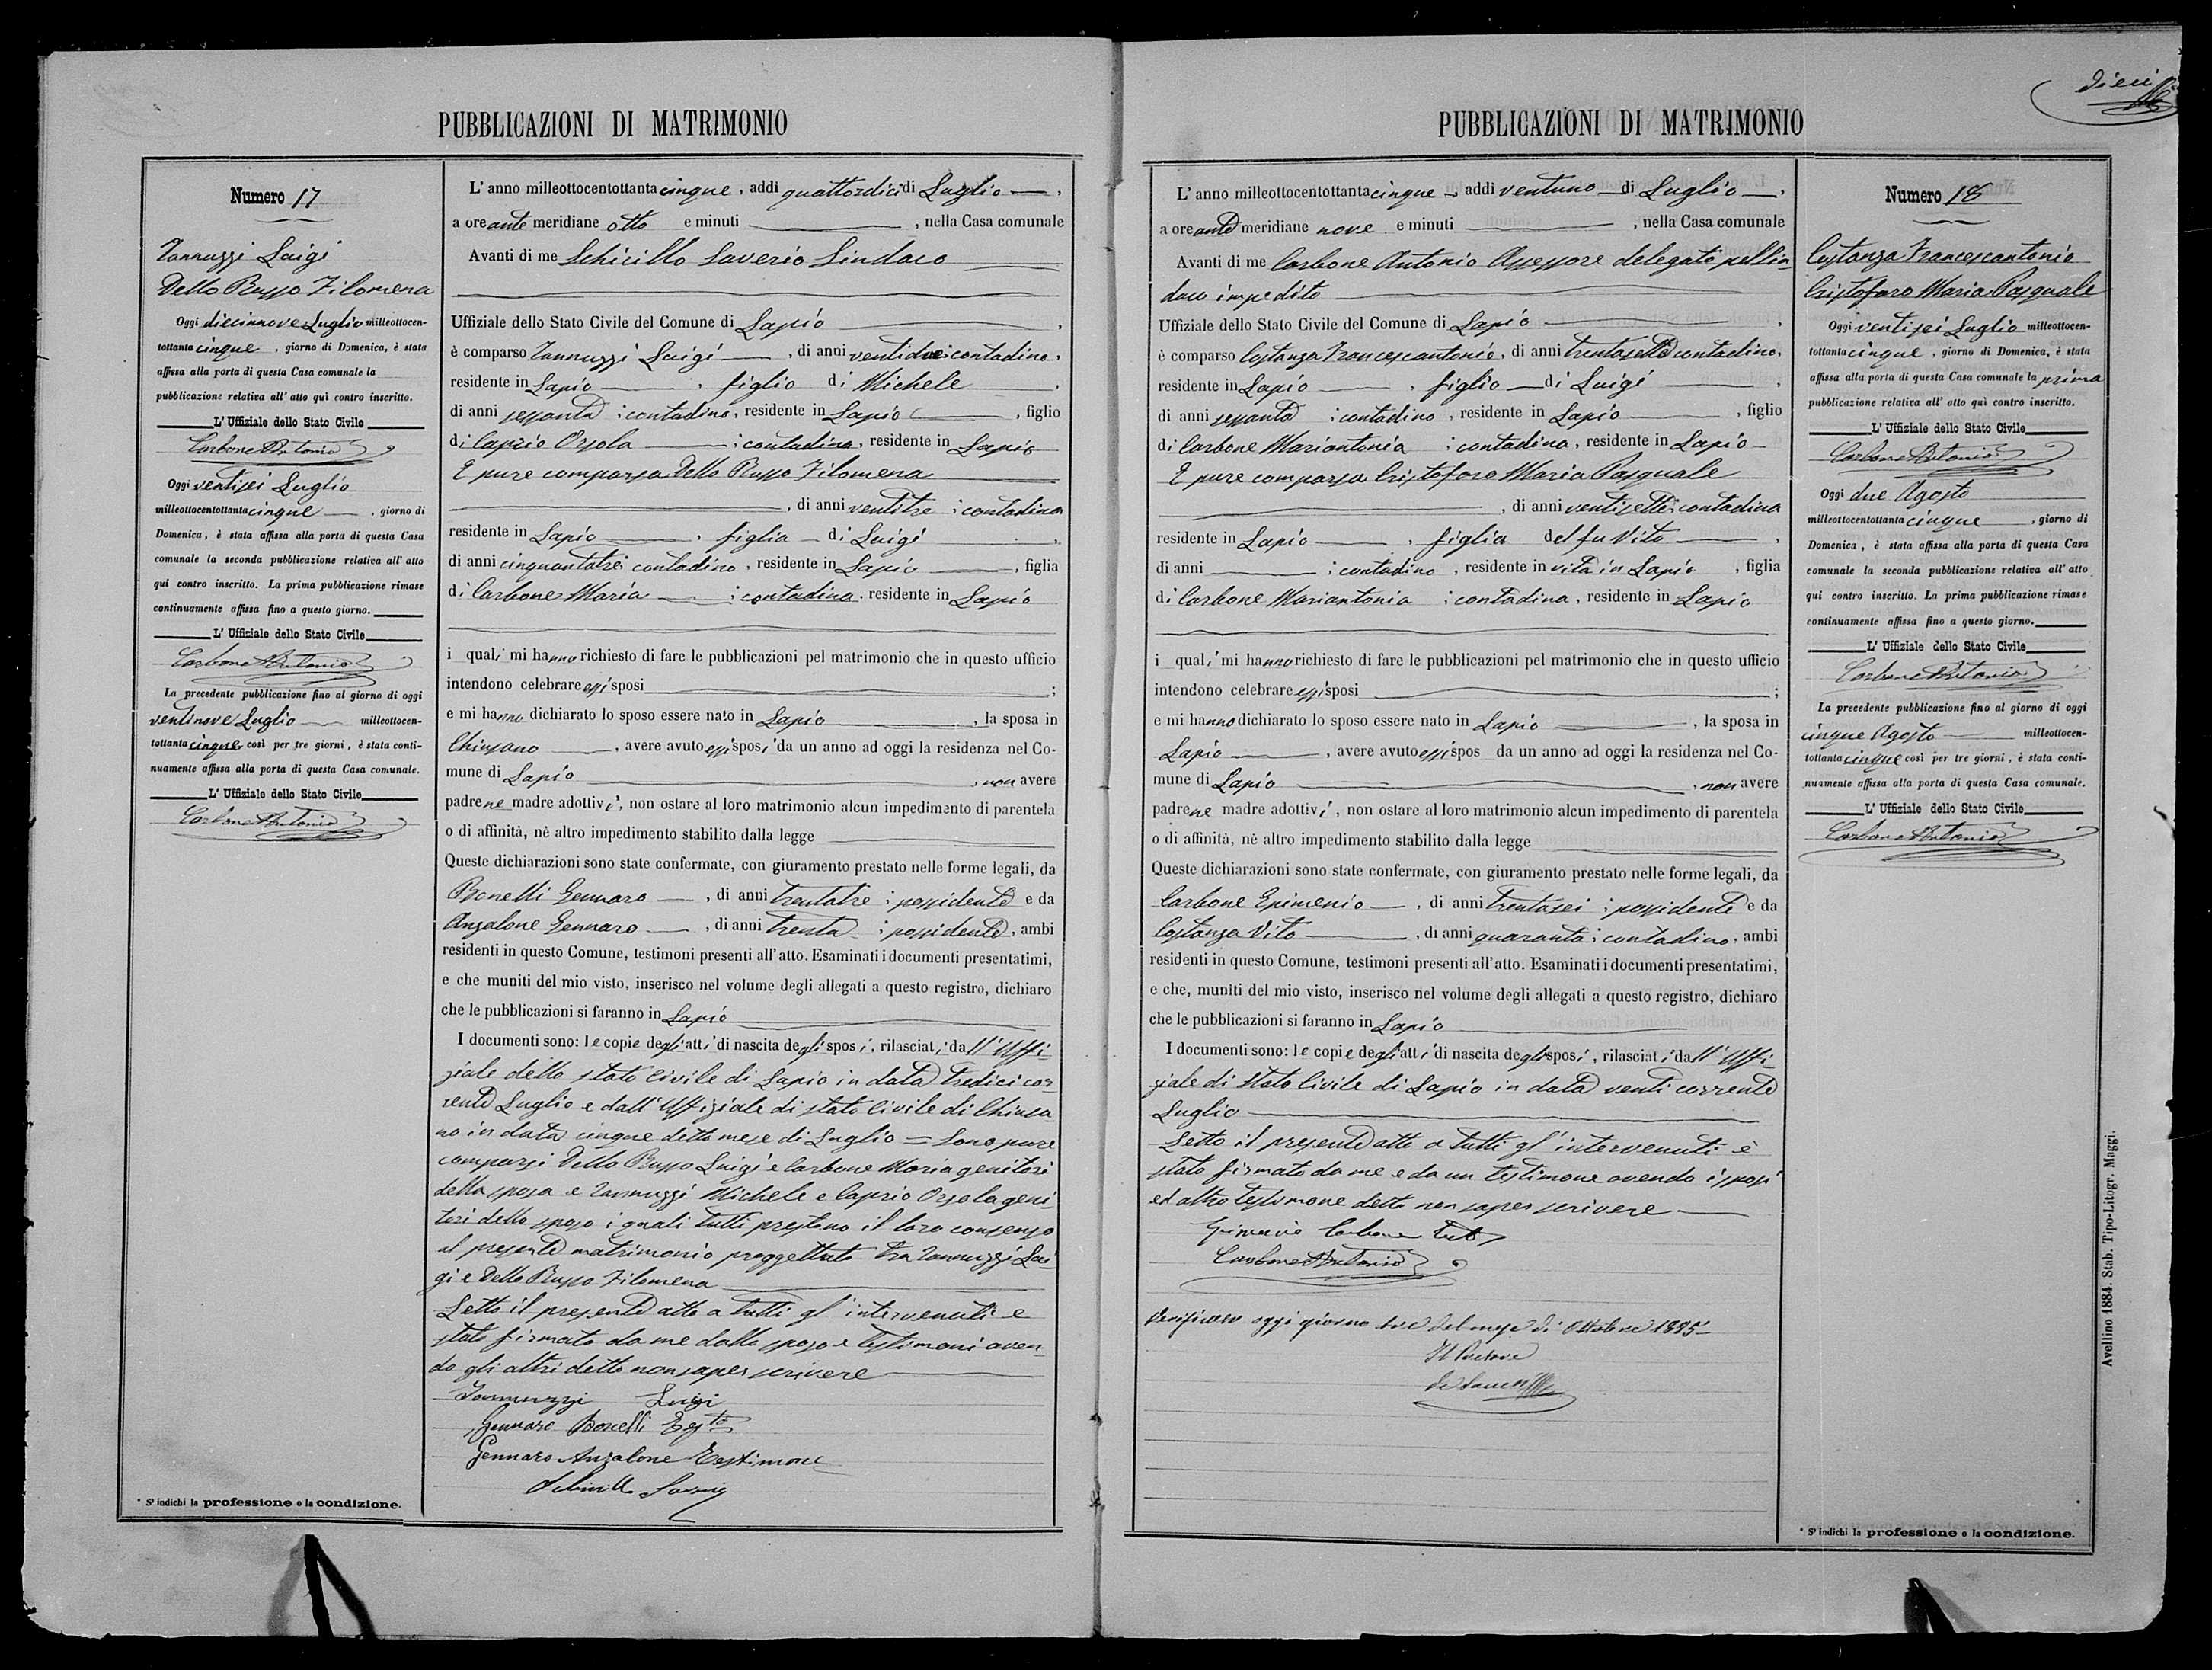 PUBBLICAZIONI DI MATRIMONIO
Numero 17
Iannuzzi Luigi
Dello Russo Filomena
Oggi diecinnove Luglio milleottocen-
tottanta cinque, giorno di Domenica, è stata
affissa alla porta di questa Casa comunale la
pubblicazione relativa all' atto quì contro inscritto.
L' Uffiziale dello Stato Civile
Carbone Antonio
Oggi ventisei Luglio
milleottocentottanta cinque, giorno di
Domenica, è stata affissa alla porta di questa Casa
comunale la seconda pubblicazione relativa all' atto
qui contro inscritto. La prima pubblicazione rimase
continuamente affissa fino a questo giorno.
L' Uffiziale dello Stato Civile
Carbone Antonio
La precedente pubblicazione fino al giorno di oggi
ventinove Luglio milleottocen-
tottanta cinque così per tre giorni, è stata conti-
nuamente affissa alla porta di questa Casa comunale.
L' Uffiziale dello Stato Civile
Carbone Antonio
* Si indichi la professione o la condizione.
L' anno milleottocentottanta cinque, addi quattordici di Luglio,
a ore ante meridiane otto e minuti , nella Casa comunale
Avanti di me Schirillo Saverio Sindaco
Uffiziale dello Stato Civile del Comune di Lapio,
è comparso Iannuzzi Luigi, di anni ventidue; contadino,
residente in Lapio, figlio di Michele,
di anni sessanta; contadino, residente in Lapio, figlio
di Caprio Orsola; contadina, residente in Lapio
E pure comparsa Dello Russo Filomena
, di anni ventitre; contadina
residente in Lapio, figlia di Luigi,
di anni cinquantatre; contadino, residente in Lapio, figlia
di Carbone Maria; contadina, residente in Lapio
i quali mi hanno richiesto di fare le pubblicazioni pel matrimonio che in questo ufficio
intendono celebrare essi sposi;
e mi hanno dichiarato lo sposo essere nato in Lapio, la sposa in
Chiusano, avere avuto essi sposi da un anno ad oggi la residenza nel Co-
mune di Lapio, non avere
padre ne madre adottivi, non ostare al loro matrimonio alcun impedimento di parentela
o di affinità, nè altro impedimento stabilito dalla legge
Queste dichiarazioni sono state confermate, con giuramento prestato nelle forme legali, da
Bonelli Gennaro, di anni trentatre; possidente e da
Anzalone Gennaro, di anni trenta; possidente, ambi
residenti in questo Comune, testimoni presenti all'atto. Esaminati i documenti presentatimi,
e che muniti del mio visto, inserisco nel volume degli allegati a questo registro, dichiaro
che le pubblicazioni si faranno in Lapio
I documenti sono: le copie degli atti di nascita degli sposi, rilasciati dall' Uffi-
ziale dello stato civile di Lapio in data tredici cor
rente Luglio e dall' Uffiziale di stato civile di Chiusa
no in data cinque detto mese di Luglio = Sono pure
comparsi Dello Russo Luigi e Carbone Maria genitori
della sposa e Iannuzzi Michele e Caprio Orsola geni-
tori dello sposo i quali tutti prestano il loro consenso
al presente matrimonio proggettato tra Iannuzzi Lui-
gi e Dello Russo Filomena
Letto il presente atto a tutti gl' intervenuti e
stato firmato da me dallo sposo e testimoni aven-
do gli altri detto non saper scrivere
Iannuzzi Luigi
Gennaro Bonelli Testo
Gennaro Anzalone Testimone
Schirillo Saverio
PUBBLICAZIONI DI MATRIMONIO
L' anno milleottocentottanta cinque, addi ventuno di Luglio,
a ore ante meridiane nove e minuti , nella Casa comunale
Avanti di me Carbone Antonio Assessore delegato pel Sin-
daco impedito
Uffiziale dello Stato Civile del Comune di Lapio,
è comparso Costanza Francescantonio, di anni trentasette contadino,
residente in Lapio, figlio di Luigi,
di anni sessanta; contadino, residente in Lapio, figlio
di Carbone Mariantonia; contadina, residente in Lapio
E pure comparsa Cristofaro Maria Pasquale
, di anni ventisette; contadina
residente in Lapio, figlia del fu Vito,
di anni ; contadino, residente in vita in Lapio, figlia
di Carbone Mariantonia; contadina, residente in Lapio
i quali mi hanno richiesto di fare le pubblicazioni pel matrimonio che in questo ufficio
intendono celebrare essi sposi;
e mi hanno dichiarato lo sposo essere nato in Lapio, la sposa in
Lapio, avere avuto essi spos da un anno ad oggi la residenza nel Co-
mune di Lapio, non avere
padre ne madre adottivi, non ostare al loro matrimonio alcun impedimento di parentela
o di affinità, nè altro impedimento stabilito dalla legge
Queste dichiarazioni sono state confermate, con giuramento prestato nelle forme legali, da
Carbone Epimenio, di anni trentasei; possidente e da
Costanza Vito, di anni quaranta; contadino, ambi
residenti in questo Comune, testimoni presenti all'atto. Esaminati i documenti presentatimi,
e che, muniti del mio visto, inserisco nel volume degli allegati a questo registro, dichiaro
che le pubblicazioni si faranno in Lapio
I documenti sono: le copie degli atti di nascita degli sposi, rilasciati dall' Uffi-
ziale di Stato Civile di Lapio in data venti corrente
Luglio
Letto il presente atto a tutti gl' intervenuti è
stato firmato da me e da un testimone avendo i sposi
ed altro testimone detto non saper scrivere
Epimenio Carbone Test
Carbone Antonio
Verificato oggi giorno tre del mese di Ottobre 1885
Il Pretore
Numero 18
Costanza Francescantonio
Cristofaro Maria Pasquale
Oggi ventisei Luglio milleottocen-
tottanta cinque, giorno di Domenica, è stata
affissa alla porta di questa Casa comunale la prima
pubblicazione relativa all' atto quì contro inscritto.
L' Uffiziale dello Stato Civile
Carbone Antonio
Oggi due Agosto
milleottocentottanta cinque, giorno di
Domenica, è stata affissa alla porta di questa Casa
comunale la seconda pubblicazione relativa all' atto
qui contro inscritto. La prima pubblicazione rimase
continuamente affissa fino a questo giorno.
L' Uffiziale dello Stato Civile
Carbone Antonio
La precedente pubblicazione fino al giorno di oggi
cinque Agosto milleottocen-
tottanta cinque così per tre giorni, è stata conti-
nuamente affissa alla porta di questa Casa comunale.
L' Uffiziale dello Stato Civile
Carbone Antonio
* Si indichi la professione o la condizione.
Avellino 1884. Stab. Tipo-Litogr. Maggi.